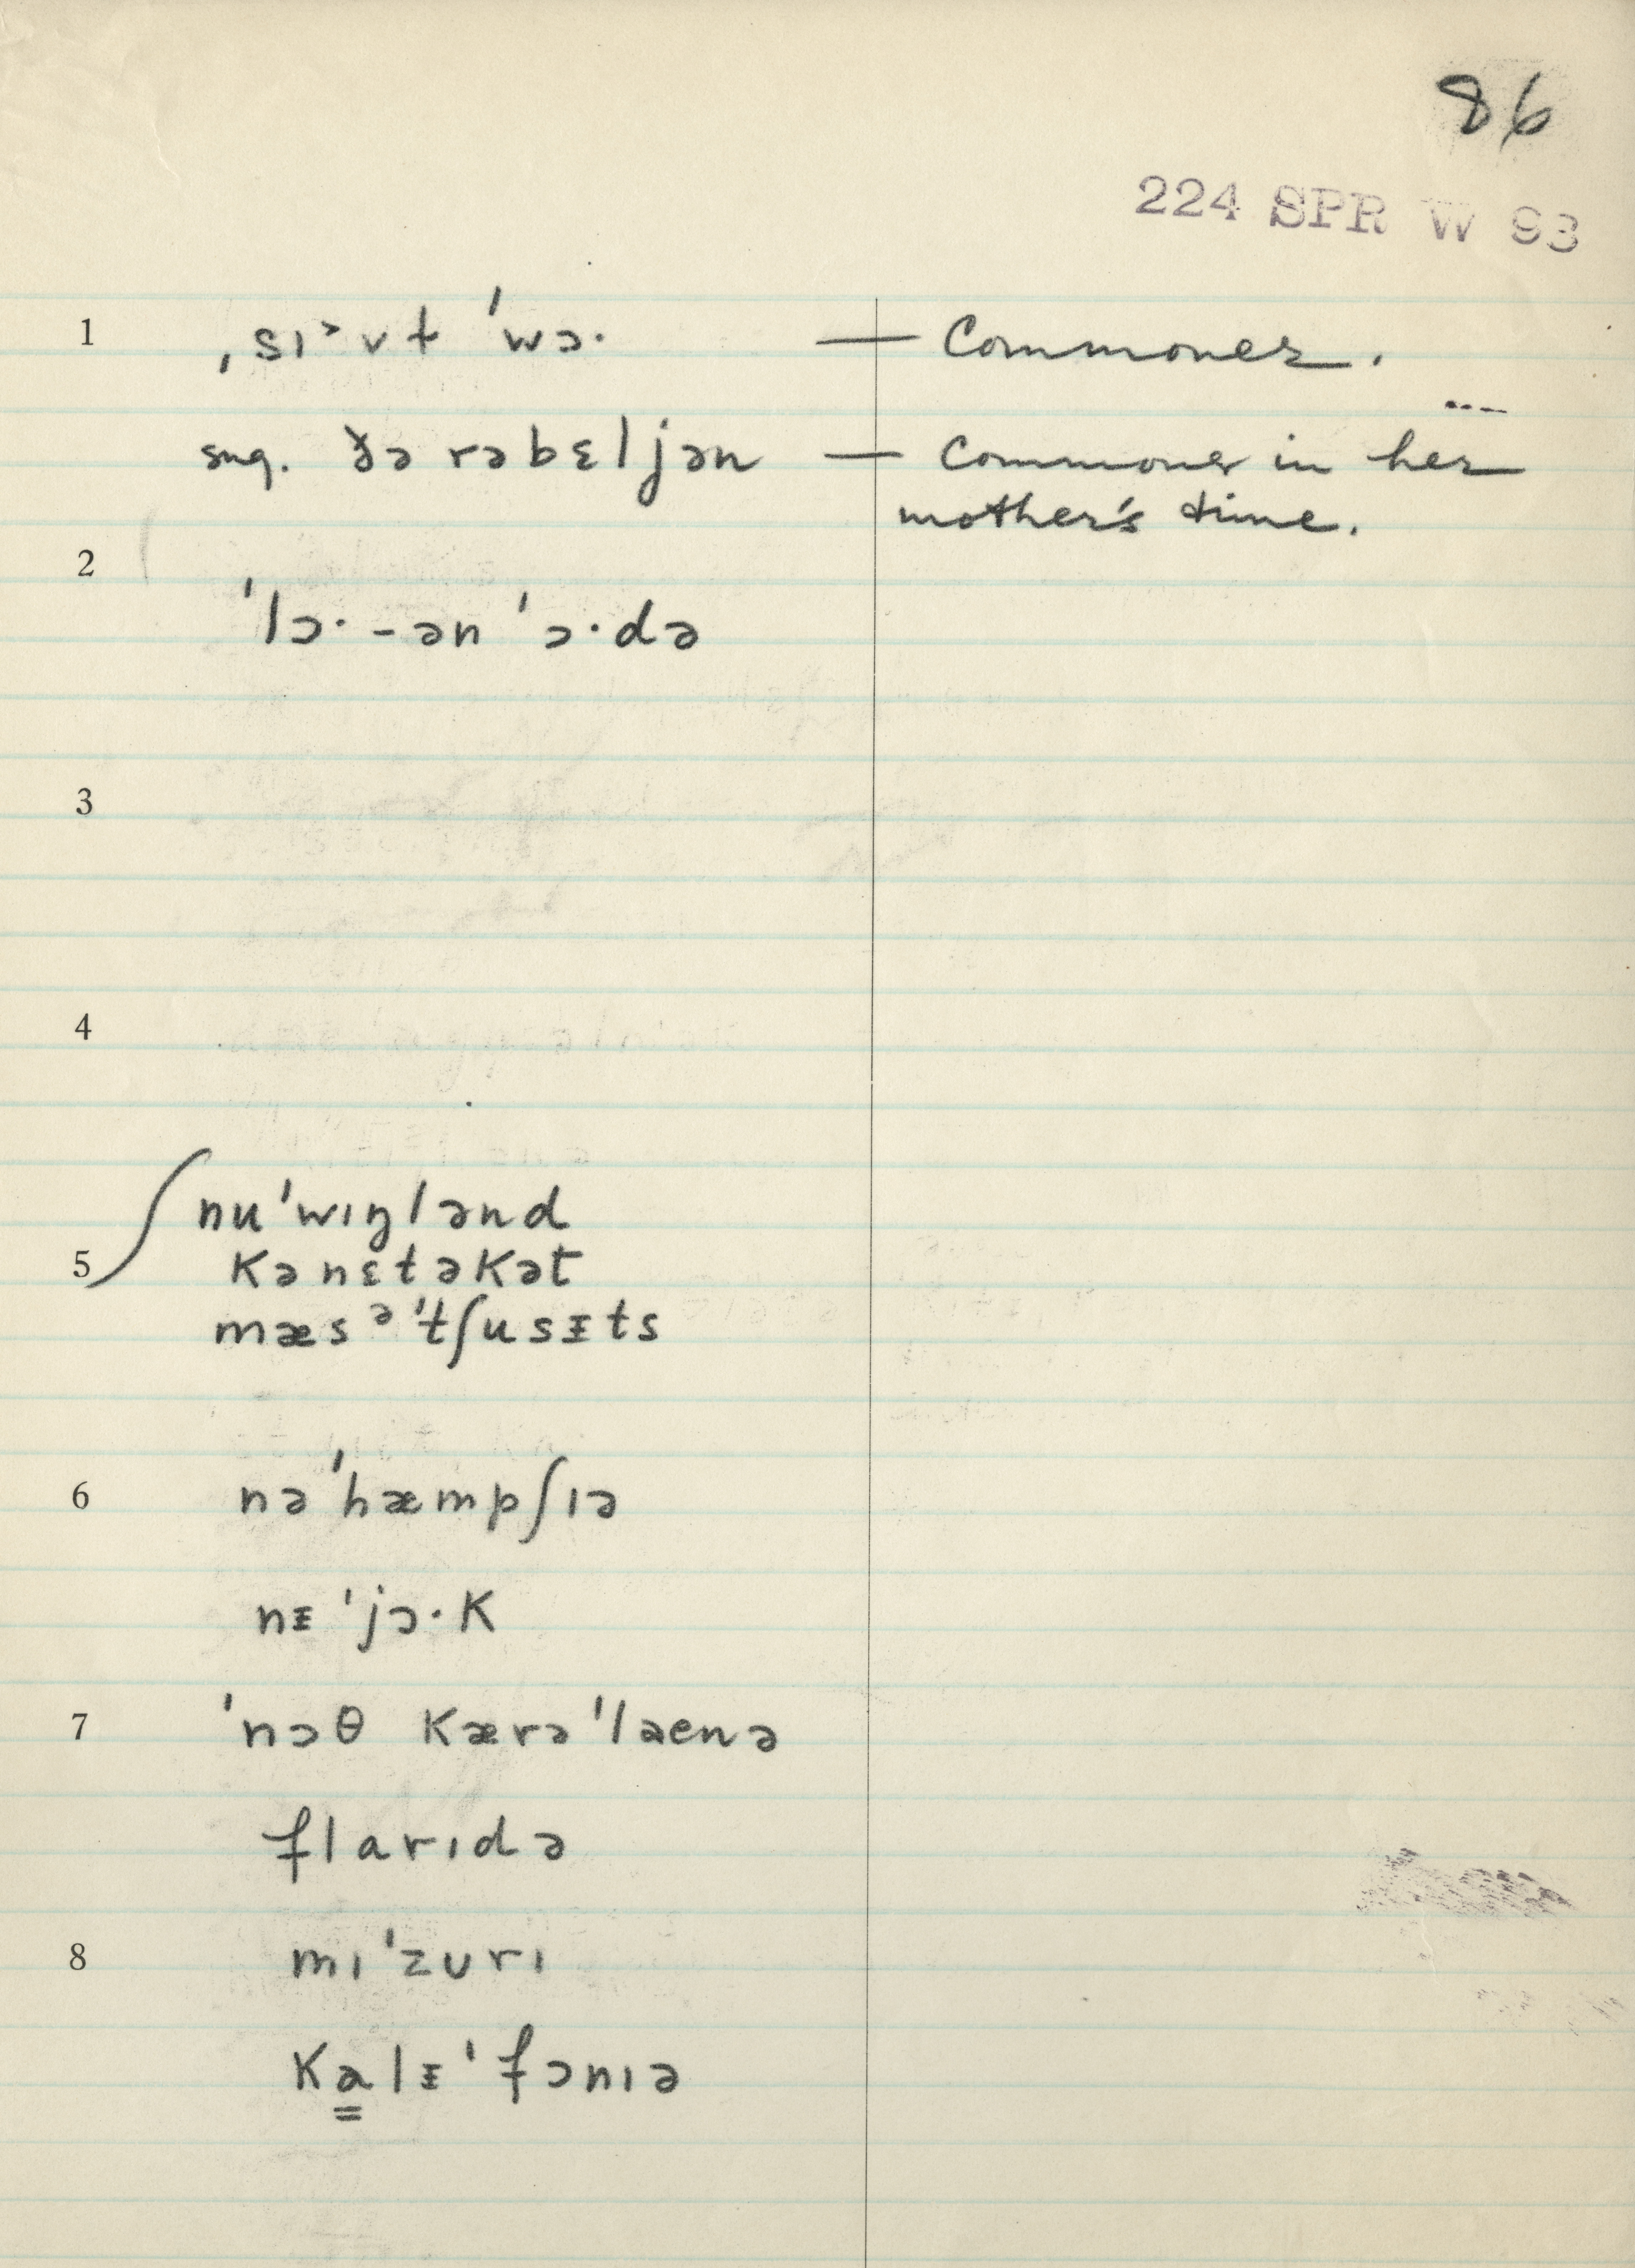 86
224 SPR W 93
1 ˌsɪ˃vɫ ˈwɔ· — Commoner.
sug. ðə rəbɛljən — Commoner in her
mother's time.
2
ˈlɔ·-ən ˈɔ·də
3
4
nuˈwɪŋlənd
5 kənɛtəkət
mæsᵊˈtʃusᵻts
6 nəˈhæmpʃɪə
nᵻˈjɔ·k
7 ˈnɔθ kærəˈlaenə
flarɪdə
8 mɪˈzurɪ
ka̳lᵻˈfɔnɪə